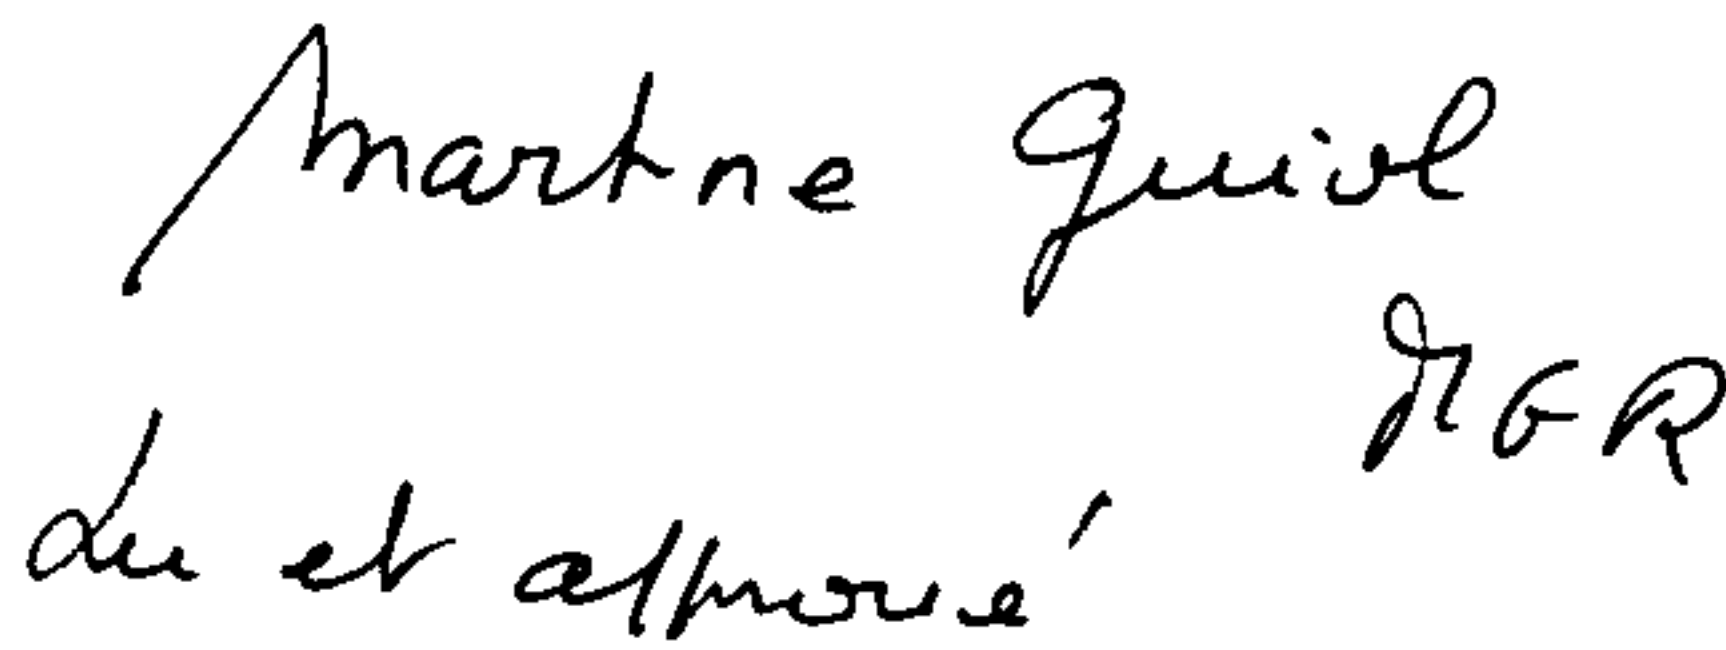 Martine Guiol
MGR
Lu et approuvé